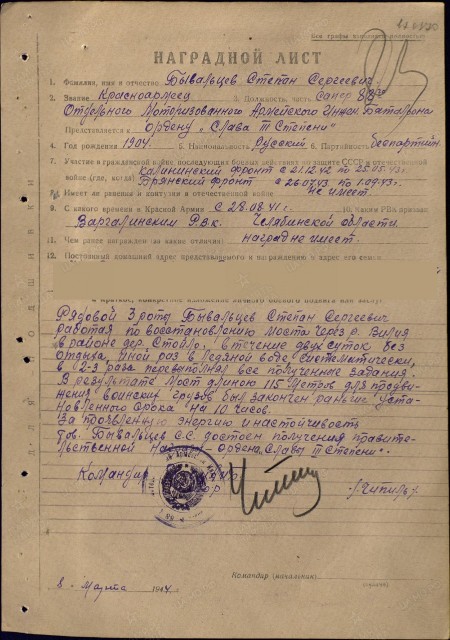 Все графы заполняются полностью
НАГРАДНОЙ ЛИСТ
1. Фамилия, имя и отчество Бывальцев Степан Сергеевич
2. Звание Красноармеец 3. Должность, часть Сапер
Отдельного Моторизованного Армейского Инжен Батальона
Представляется к ордену „Слава III Степени"
4. Год рождения 1904. 5. Национальность Русский 6. Партийность беспартийн.
7. Участие в гражданской войне, последующих боевых действиях по защите СССР и отечественной
войне (где, когда) Калининский фронт с 21.12.42 по 25.05.43г.
Брянский фронт с 26.07.43 по 1.09.43г.
8. Имеет ли ранения и контузии в отечественной войне не имеет
9. С какого времени в Красной Армии с 28.08.41г. 10. Каким РВК призван
Варгашинским РВК. Челябинской области.
11. Чем ранее награжден (за какие отличия) наград не имеет.
12. Постоянный домашний адрес представляемого к награждению и адрес его семьи
Рядовой 3 роты Бывальцев Степан Сергеевич
работая по восстановлению моста через р. Вилия
в районе дер. Стойло. в течение двух суток без
отдыха, иной раз в ледяной воде, систематически,
в 2-3 раза перевыполнял все полученные задания.
В результате мост длиною 115 метров для продви-
жения воинских грузов был закончен раньше уста-
новленного срока на 10 часов.
За проявленную энергию и настойчивость
тов. Бывальцев С.С. достоен получения правите-
льственной награды - ордена „Славы III Степени".
Командир
/Чипиль/.
Командир (начальник)
8 - Марта 1944г.